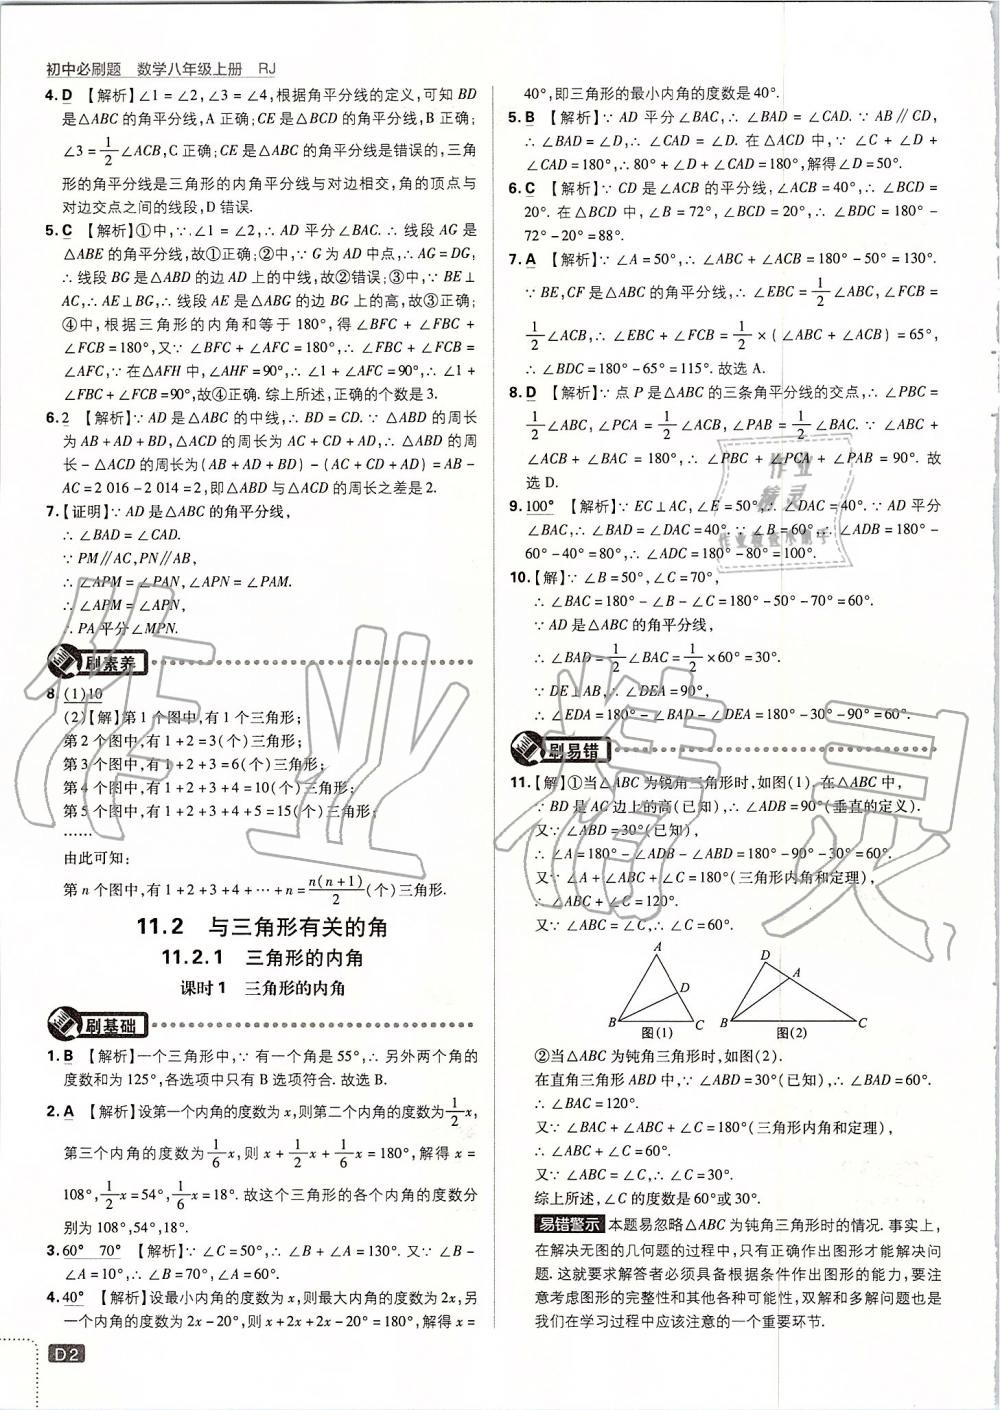 初中必刷题　数学八年级上册　RJ
4. D 【解析】∠1 = ∠2,∠3 = ∠4,根据角平分线的定义,可知 BD
是△ABC 的角平分线,A 正确;CE 是△BCD 的角平分线,B 正确;
∠3 = 1/2 ∠ACB,C 正确;CE 是△ABC 的角平分线是错误的,三角
形的角平分线是三角形的内角平分线与对边相交,角的顶点与
对边交点之间的线段,D 错误.
5. C 【解析】①中,∵ ∠1 = ∠2,∴ AD 平分∠BAC. ∴ 线段 AG 是
△ABE 的角平分线,故①正确;②中,∵ G 为 AD 中点,∴ AG = DG,
∴ 线段 BG 是△ABD 的边 AD 上的中线,故②错误;③中,∵ BE⊥
AC,∴ AE⊥BG,∴ 线段 AE 是△ABG 的边 BG 上的高,故③正确;
④中,根据三角形的内角和等于 180°,得∠BFC + ∠FBC +
∠FCB = 180°,又∵ ∠BFC + ∠AFC = 180°,∴ ∠FBC + ∠FCB =
∠AFC,∵ 在△AFH 中,∠AHF = 90°,∴ ∠1 + ∠AFC = 90°,∴ ∠1 +
∠FBC + ∠FCB = 90°,故④正确. 综上所述,正确的个数是 3.
6. 2 【解析】∵ AD 是△ABC 的中线,∴ BD = CD. ∵ △ABD 的周长
为 AB + AD + BD,△ACD 的周长为 AC + CD + AD,∴ △ABD 的周
长 - △ACD 的周长为(AB + AD + BD) - (AC + CD + AD) = AB -
AC = 2 016 - 2 014 = 2,即△ABD 与△ACD 的周长之差是 2.
7.【证明】∵ AD 是△ABC 的角平分线,
∴ ∠BAD = ∠CAD.
∵ PM∥AC,PN∥AB,
∴ ∠APM = ∠PAN,∠APN = ∠PAM.
∴ ∠APM = ∠APN,
∴ PA 平分∠MPN.
刷素养
8. (1)10
(2)【解】第 1 个图中,有 1 个三角形;
第 2 个图中,有 1 + 2 = 3(个)三角形;
第 3 个图中,有 1 + 2 + 3 = 6(个)三角形;
第 4 个图中,有 1 + 2 + 3 + 4 = 10(个)三角形;
第 5 个图中,有 1 + 2 + 3 + 4 + 5 = 15(个)三角形;
……
由此可知:
第 n 个图中,有 1 + 2 + 3 + 4 + … + n = n(n+1)/2 (个)三角形.
11.2　与三角形有关的角
11.2.1　三角形的内角
课时 1　三角形的内角
刷基础
1. B 【解析】一个三角形中,∵ 有一个角是 55°,∴ 另外两个角的
度数和为 125°,各选项中只有 B 选项符合. 故选 B.
2. A 【解析】设第一个内角的度数为 x,则第二个内角的度数为 1/2 x,
第三个内角的度数为 1/6 x,则 x + 1/2 x + 1/6 x = 180°,解得 x =
108°, 1/2 x = 54°, 1/6 x = 18°. 故这个三角形的各个内角的度数分
别为 108°,54°,18°.
3. 60° 70° 【解析】∵ ∠C = 50°,∴ ∠B + ∠A = 130°. 又∵ ∠B -
∠A = 10°,∴ ∠B = 70°,∠A = 60°.
4. 40° 【解析】设最小内角的度数为 x,则最大内角的度数为 2x,另
一个内角的度数为 2x - 20°,则 x + 2x + 2x - 20° = 180°,解得 x =
D2
40°,即三角形的最小内角的度数是 40°.
5. B 【解析】∵ AD 平分∠BAC,∴ ∠BAD = ∠CAD. ∵ AB∥CD,
∴ ∠BAD = ∠D,∴ ∠CAD = ∠D. 在△ACD 中,∵ ∠C + ∠D +
∠CAD = 180°,∴ 80° + ∠D + ∠CAD = 180°,解得∠D = 50°.
6. C 【解析】∵ CD 是∠ACB 的平分线,∠ACB = 40°,∴ ∠BCD =
20°. 在△BCD 中,∠B = 72°,∠BCD = 20°,∴ ∠BDC = 180° -
72° - 20° = 88°.
7. A 【解析】∵ ∠A = 50°,∴ ∠ABC + ∠ACB = 180° - 50° = 130°.
∵ BE,CF 是△ABC 的角平分线,∴ ∠EBC = 1/2 ∠ABC,∠FCB =
1/2 ∠ACB,∴ ∠EBC + ∠FCB = 1/2 × (∠ABC + ∠ACB) = 65°,
∴ ∠BDC = 180° - 65° = 115°. 故选 A.
8. D 【解析】∵ 点 P 是△ABC 的三条角平分线的交点,∴ ∠PBC =
1/2 ∠ABC,∠PCA = 1/2 ∠ACB,∠PAB = 1/2 ∠BAC. ∵ ∠ABC +
∠ACB + ∠BAC = 180°,∴ ∠PBC + ∠PCA + ∠PAB = 90°. 故
选 D.
9. 100° 【解析】∵ EC⊥AC,∠E = 50°,∴ ∠DAC = 40°. ∵ AD 平分
∠BAC,∴ ∠BAD = ∠DAC = 40°. ∵ ∠B = 60°,∴ ∠ADB = 180° -
60° - 40° = 80°,∴ ∠ADC = 180° - 80° = 100°.
10.【解】∵ ∠B = 50°,∠C = 70°,
∴ ∠BAC = 180° - ∠B - ∠C = 180° - 50° - 70° = 60°.
∵ AD 是△ABC 的角平分线,
∴ ∠BAD = 1/2 ∠BAC = 1/2 × 60° = 30°.
∵ DE⊥AB,∴ ∠DEA = 90°,
∴ ∠EDA = 180° - ∠BAD - ∠DEA = 180° - 30° - 90° = 60°.
刷易错
11.【解】①当△ABC 为锐角三角形时,如图(1). 在△ABC 中,
∵ BD 是 AC 边上的高(已知),∴ ∠ADB = 90°(垂直的定义).
又∵ ∠ABD = 30°(已知),
∴ ∠A = 180° - ∠ADB - ∠ABD = 180° - 90° - 30° = 60°.
又∵ ∠A + ∠ABC + ∠C = 180°(三角形内角和定理),
∴ ∠ABC + ∠C = 120°.
又∵ ∠ABC = ∠C,∴ ∠C = 60°.
A D B C 图(1)
D A B C 图(2)
②当△ABC 为钝角三角形时,如图(2).
在直角三角形 ABD 中,∵ ∠ABD = 30°(已知),∴ ∠BAD = 60°.
∴ ∠BAC = 120°.
又∵ ∠BAC + ∠ABC + ∠C = 180°(三角形内角和定理),
∴ ∠ABC + ∠C = 60°.
又∵ ∠ABC = ∠C,∴ ∠C = 30°.
综上所述,∠C 的度数是 60°或 30°.
易错警示 本题易忽略△ABC 为钝角三角形时的情况. 事实上,
在解决无图的几何题的过程中,只有正确作出图形才能解决问
题. 这就要求解答者必须具备根据条件作出图形的能力,要注
意考虑图形的完整性和其他各种可能性,双解和多解问题也是
我们在学习过程中应该注意的一个重要环节.
作业精灵
作业
精灵